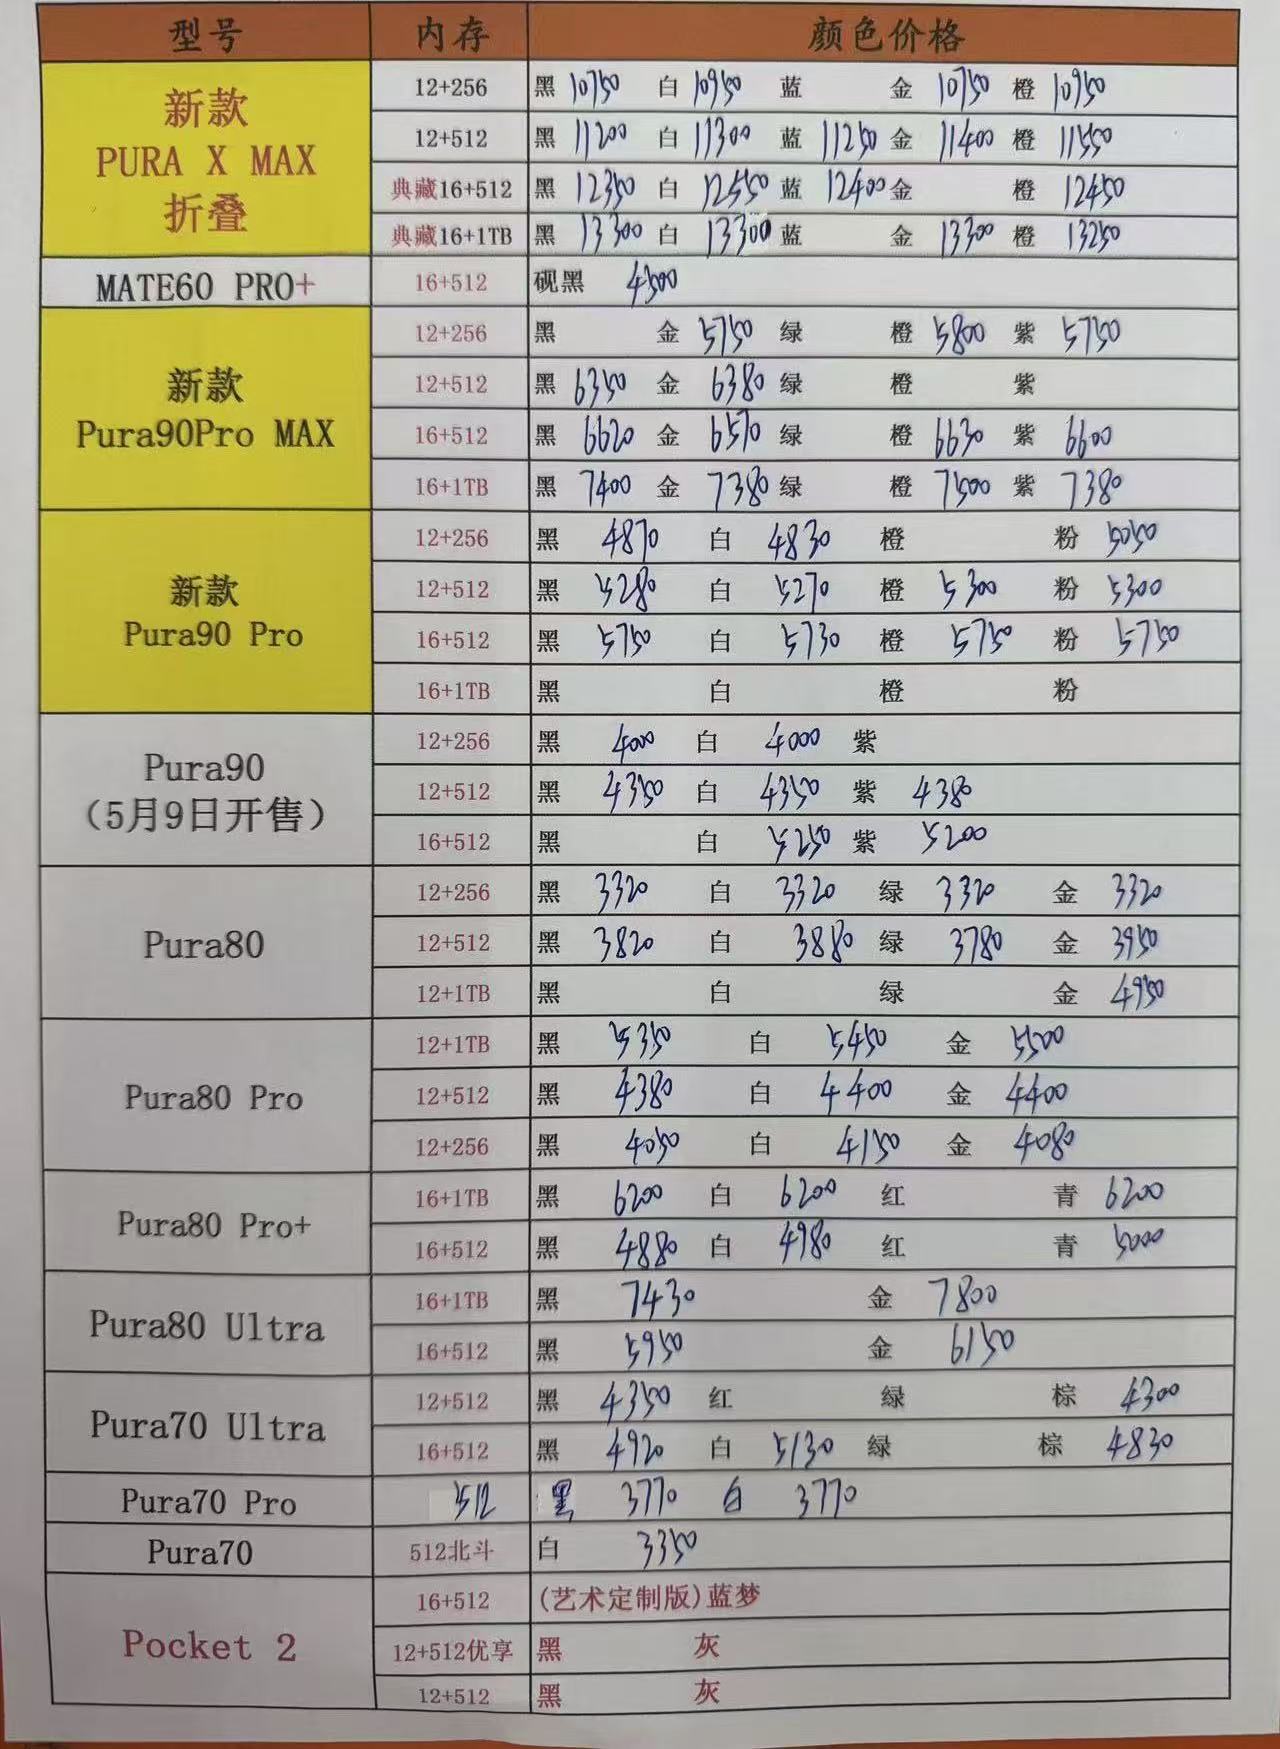 型号 内存 颜色价格
新款
PURA X MAX
折叠
12+256 黑 10750 白 10950 蓝 金 10750 橙 10950
12+512 黑 11200 白 11300 蓝 11250 金 11400 橙 11550
典藏16+512 黑 12350 白 12550 蓝 12400 金 橙 12450
典藏16+1TB 黑 13300 白 13300 蓝 金 13300 橙 13250
MATE60 PRO+ 16+512 砚黑 4500
新款
Pura90Pro MAX
12+256 黑 金 5750 绿 橙 5800 紫 5750
12+512 黑 6350 金 6380 绿 橙 紫
16+512 黑 6620 金 6570 绿 橙 6630 紫 6600
16+1TB 黑 7400 金 7380 绿 橙 7500 紫 7380
新款
Pura90 Pro
12+256 黑 4870 白 4830 橙 粉 5050
12+512 黑 5280 白 5270 橙 5300 粉 5300
16+512 黑 5750 白 5730 橙 5750 粉 5750
16+1TB 黑 白 橙 粉
Pura90
（5月9日开售）
12+256 黑 4000 白 4000 紫
12+512 黑 4350 白 4350 紫 4380
16+512 黑 白 5250 紫 5200
Pura80
12+256 黑 3320 白 3320 绿 3320 金 3320
12+512 黑 3820 白 3880 绿 3780 金 3950
12+1TB 黑 白 绿 金 4950
Pura80 Pro
12+1TB 黑 5350 白 5450 金 5500
12+512 黑 4380 白 4400 金 4400
12+256 黑 4050 白 4150 金 4080
Pura80 Pro+
16+1TB 黑 6200 白 6200 红 青 6200
16+512 黑 4880 白 4980 红 青 5000
Pura80 Ultra
16+1TB 黑 7430 金 7800
16+512 黑 5950 金 6150
Pura70 Ultra
12+512 黑 4350 红 绿 棕 4300
16+512 黑 4920 白 5130 绿 棕 4830
Pura70 Pro 512 黑 3770 白 3770
Pura70 512北斗 白 3350
Pocket 2
16+512 (艺术定制版)蓝梦
12+512优享 黑 灰
12+512 黑 灰